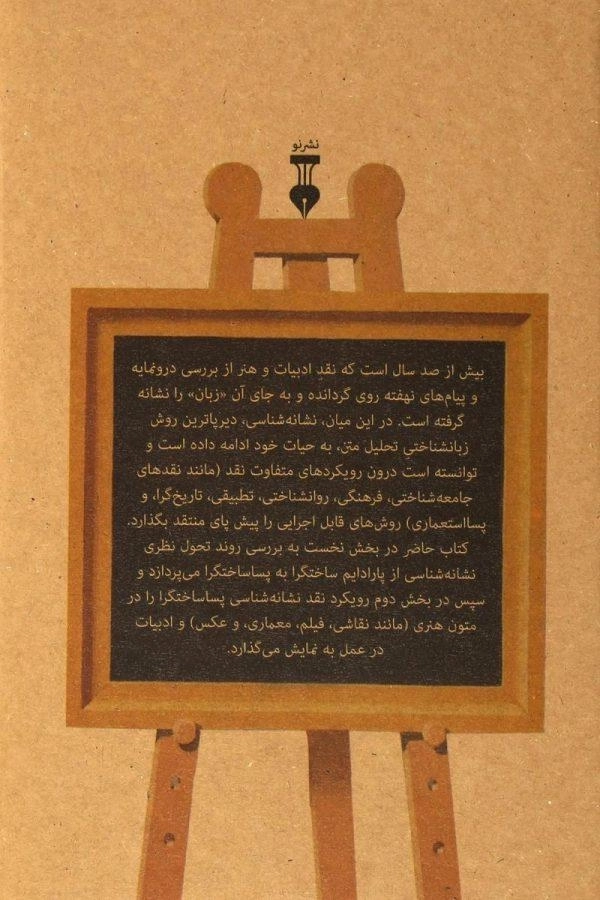 نشرنو
بیش از صد سال است که نقدِ ادبیات و هنر از بررسی درونمایه
و پیام‌های نهفته روی گردانده و به جای آن «زبان» را نشانه
گرفته است. در این میان، نشانه‌شناسی، دیرپاترین روش
زبانشناختی تحلیل متن، به حیات خود ادامه داده است و
توانسته است درون رویکردهای متفاوت نقد (مانند نقدهای
جامعه‌شناختی، فرهنگی، روانشناختی، تطبیقی، تاریخ‌گرا، و
پسااستعماری) روش‌های قابل اجرایی را پیش پای منتقد بگذارد.
کتاب حاضر در بخش نخست به بررسی روند تحول نظری
نشانه‌شناسی از پارادایم ساختگرا به پساساختگرا می‌پردازد و
سپس در بخش دوم رویکرد نقد نشانه‌شناسی پساساختگرا را در
متون هنری (مانند نقاشی، فیلم، معماری، و عکس) و ادبیات
در عمل به نمایش می‌گذارد.